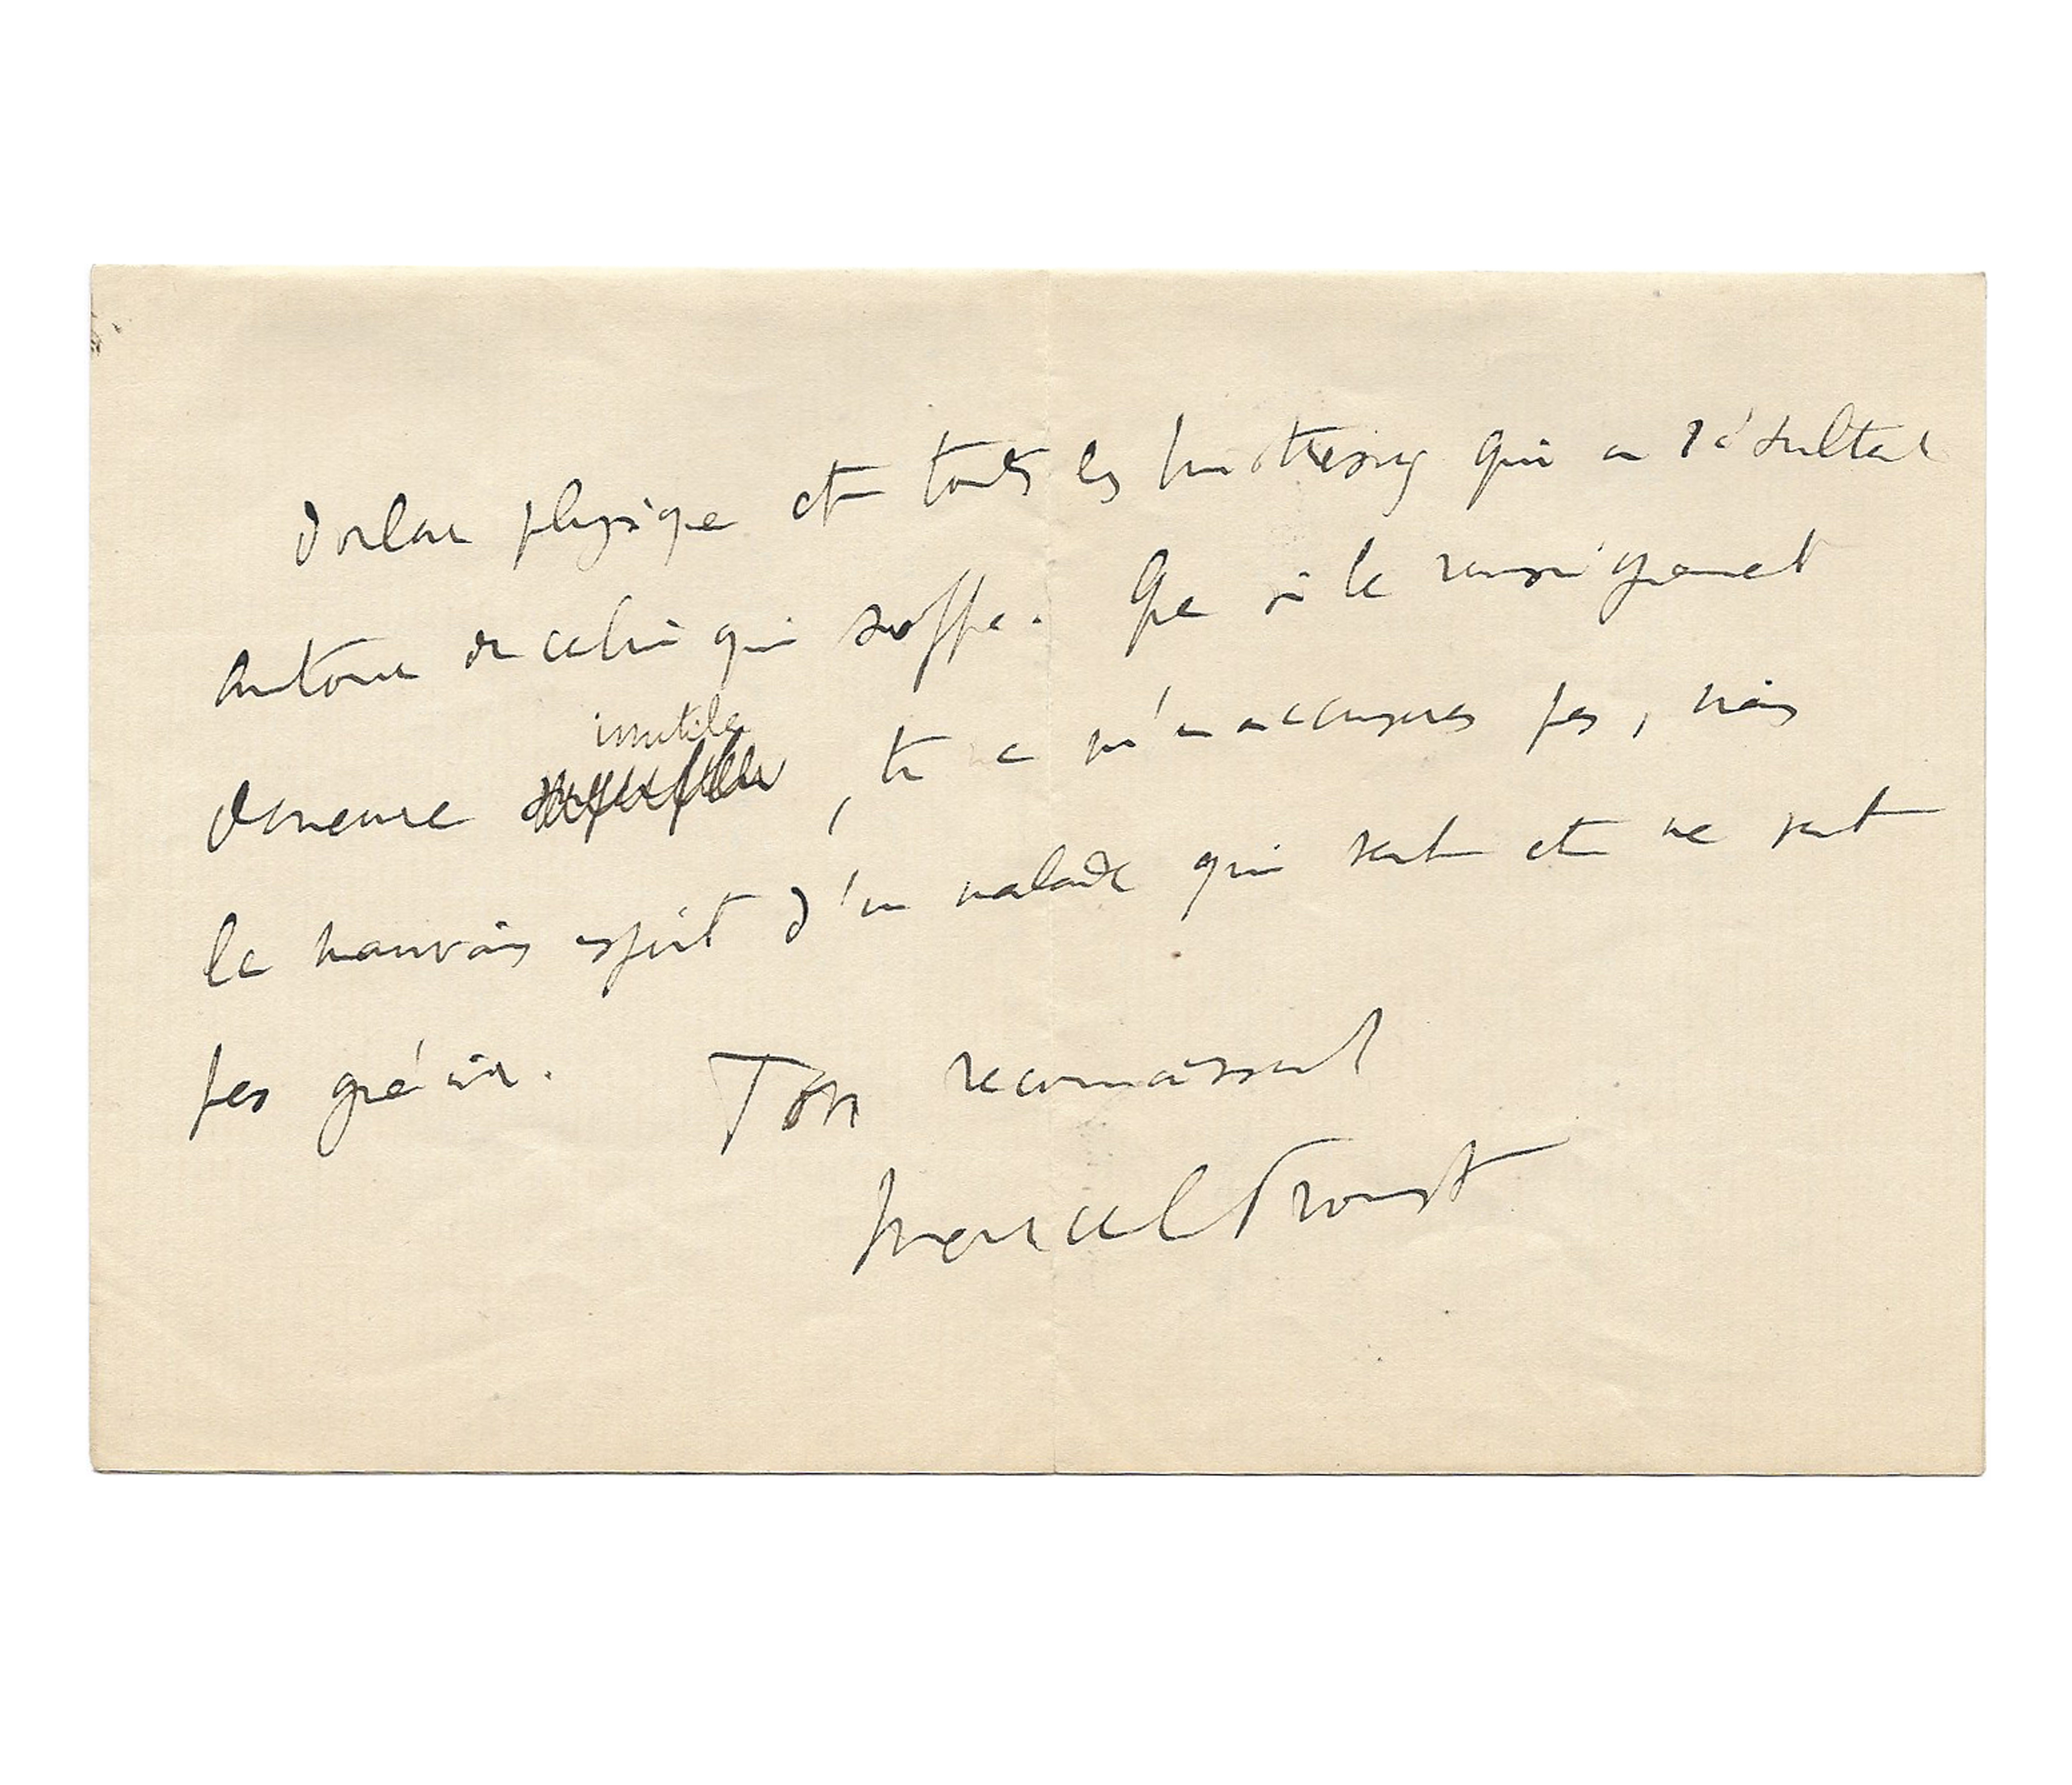 douleur physique et toutes les tristesses qui en résultent
autour de celui qui souffre. Que si le renseignement
demeure inutile, tu ne m'en accuseras pas, mais
le mauvais esprit d'un malade qui sent et ne sent
pas guérir. Ton reconnaissant
Marcel Proust